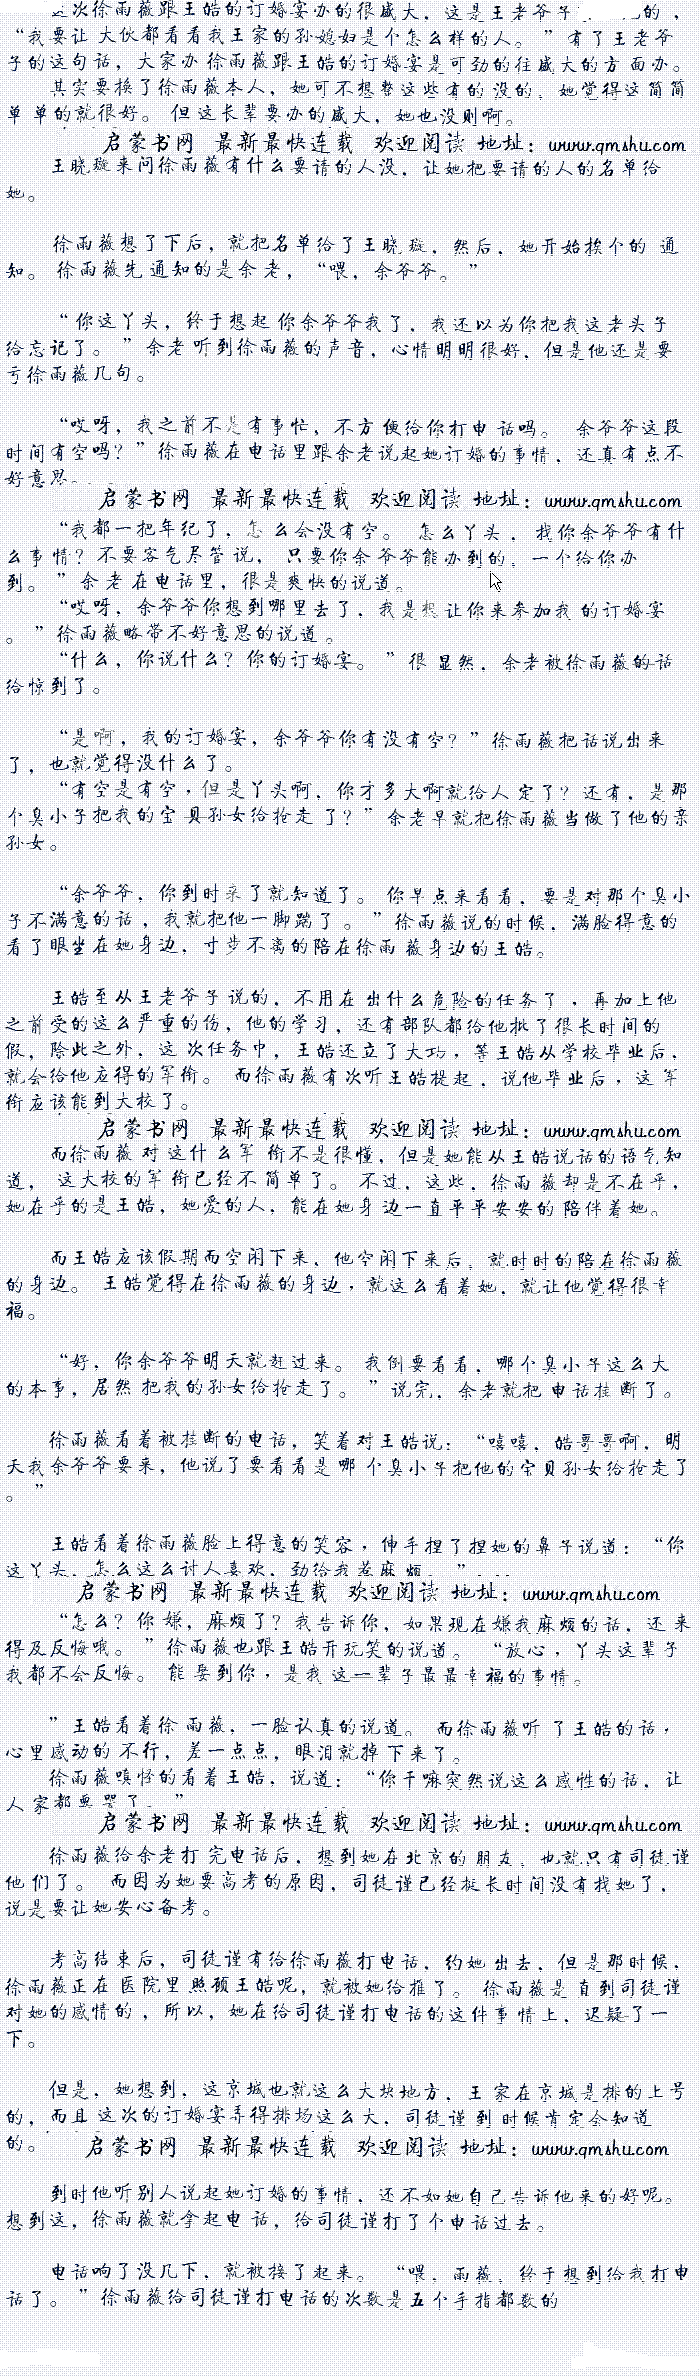 这次徐雨薇跟王皓的订婚宴办的很盛大，这是王老爷子
的，
“我要让 大伙都看看我王家的孙媳妇是个怎么样的人。”有了王老爷
子的这句话，大家办 徐雨薇跟王皓的订婚宴是可劲的往盛大的方 面办。
其实要换了徐雨薇本人，她可不想整这些有的 没的，她觉得这简简
单 单的就很好。 但这长辈要办的盛大，她也没则啊。
启蒙书网 最新最快连载 欢迎阅读 地址：www.qmshu.com
王晓璇来问徐雨薇有什么要请的人没，让她把要请的人的名单给
她。
徐雨薇想了下后，就把名单给了王晓 璇，然后，她开始挨个的 通
知。 徐雨薇先 通知的是余 老，“喂，余爷爷。”
“你这丫头，终于想起 你余爷爷我了，我还以为你把我这老头子
给忘记了。”余老 听到徐雨薇的声音，心情明明很好，但是他还是要
亏徐雨薇几句。
“哎呀，我之前不是有事忙，不方便给你打电 话吗。 余爷爷这段
时间有空吗？”徐雨薇在电话里跟余老说起她订婚的事情，还真有点不
好意思。
启蒙书网 最新最快连载 欢迎阅读 地址：www.qmshu.com
“我都一把年纪了，怎 么会没有空。 怎么丫头， 找你余爷爷有什
么事情？不要客气尽管 说， 只要你余 爷爷能办到的，一个给你办
到。”余 老 在电话里，很是爽快的说道。
“哎呀，余爷爷你想到哪里去了，我是想 让你来参加我 的订婚宴
。”徐雨薇略带不好意思的说道 。
“什么，你说什么？你的订婚宴。”很 显然，余老被徐雨薇的话
给惊到了。
“是啊，我的订婚宴，余爷爷你有没有空？”徐雨薇把话说出来
了，也就觉得没什么了。
“有空是有空，但是丫头啊，你才多大啊就给人 定了？还有，是那
个臭小子把我的宝 贝孙女给抢走 了？”余老早就把徐雨薇当做了他的亲
孙女。
“余爷爷，你到时来了就知道了。 你早点来看看，要是对那个臭小
子不满意的话 ，我就把他一脚踹了 。”徐雨薇说的时候，满脸得意的
看了眼坐在她身边，寸步不离的陪在徐雨 薇身边的王皓。
王皓至从王老爷子 说的，不用在 出什么危险的任务了 ，再加上他
之前受的这么严重的伤，他的学习，还有部队都给他批了很长时间的
假，除此之外，这 次任务中，王皓还立了大功，等王皓从学校毕业后，
就会给他应得的军衔。 而徐雨薇有次听王皓提起，说他毕业后，这 军
衔应该能到大校了。
启蒙书网 最新最快连载 欢迎阅读 地址：www.qmshu.com
而徐雨薇 对 这什么军 衔不是很懂，但是她能从王皓说话的语气知
道， 这大校的军 衔已经不 简单了。 不过，这些，徐雨 薇却是不在乎，
她在乎的是王皓，她爱的人，能在她身 边一直平平安安的 陪伴着她。
而王皓应该假期而空闲下来，他空闲下来后，就时时的陪在徐雨薇
的身边。 王皓觉得在徐雨薇的身边，就这么看着她，就让他觉得很幸
福。
“好，你余爷爷明天就赶过来。 我倒要看看，哪个臭小子这么大
的本事，居然 把我的孙女给抢走了。”说完，余老就把 电话挂 断了。
徐雨薇看着被挂断的电话，笑着对王皓说：“嘻嘻，皓哥哥啊，明
天我余爷爷要来，他说了要看看是 哪 个臭小子把他的宝贝孙女给抢走了
。”
王皓看着徐雨薇脸上得意的笑容，伸手捏了捏她的鼻子说道：“你
这丫头，怎么这么讨人喜欢，劲给我惹麻 烦。”
启蒙书网 最新最快连载 欢迎阅读 地址：www.qmshu.com
“怎么？你 嫌，麻烦了？我告诉你，如果现在嫌我麻烦的话，还 来
得及反悔哦。”徐雨薇也跟王皓开玩笑的说道。“放心，丫头这辈子
我都不会反悔。 能 娶到你，是我 这一辈子最最幸福的事情。
”王皓看着徐 雨薇，一脸认真的说道。 而徐雨薇听 了王皓的话，
心里感动的 不行，差一点点，眼泪就掉 下来了。
徐雨薇嗔怪的看着王皓，说道：“你干嘛突然说这么感性的话，让
人家都要哭了。”
启蒙书网 最新最快连载 欢迎阅读 地址：www.qmshu.com
徐雨薇给余老打 完电话后，想到她在北京的 朋友，也就只有司徒谨
他们了。 而因为她要高考的原因，司徒谨已经挺长时间没有找她了，
说是要让她安心备考。
考高结束后，司徒谨有给徐雨薇打电话，约她 出去，但是那时候，
徐雨薇正在 医院里 照顾王皓呢，就被她给推了。 徐雨薇是 直到司徒谨
对她的感情的 ，所以，她在给司徒谨打电话的这件事情上，迟疑了一
下。
但是，她想到，这京城也就这么大块地方，王 家在京城是排的上号
的，而且 这次的订婚宴弄得排场这么大，司徒谨 到 时候肯定会知道
的。
启蒙书网 最新最快连载 欢迎阅读 地址：www.qmshu.com
到时他听别人说起她订婚的事情，还不如她自己告诉他来的好呢。
想到这，徐雨薇就拿起电 话，给司徒谨打了个电话过去。
电话响了没几下，就被接了起来。 “喂，雨薇，终于想到给我打电
话了。”徐雨薇给司徒谨打电话的次数是五个手指都数的